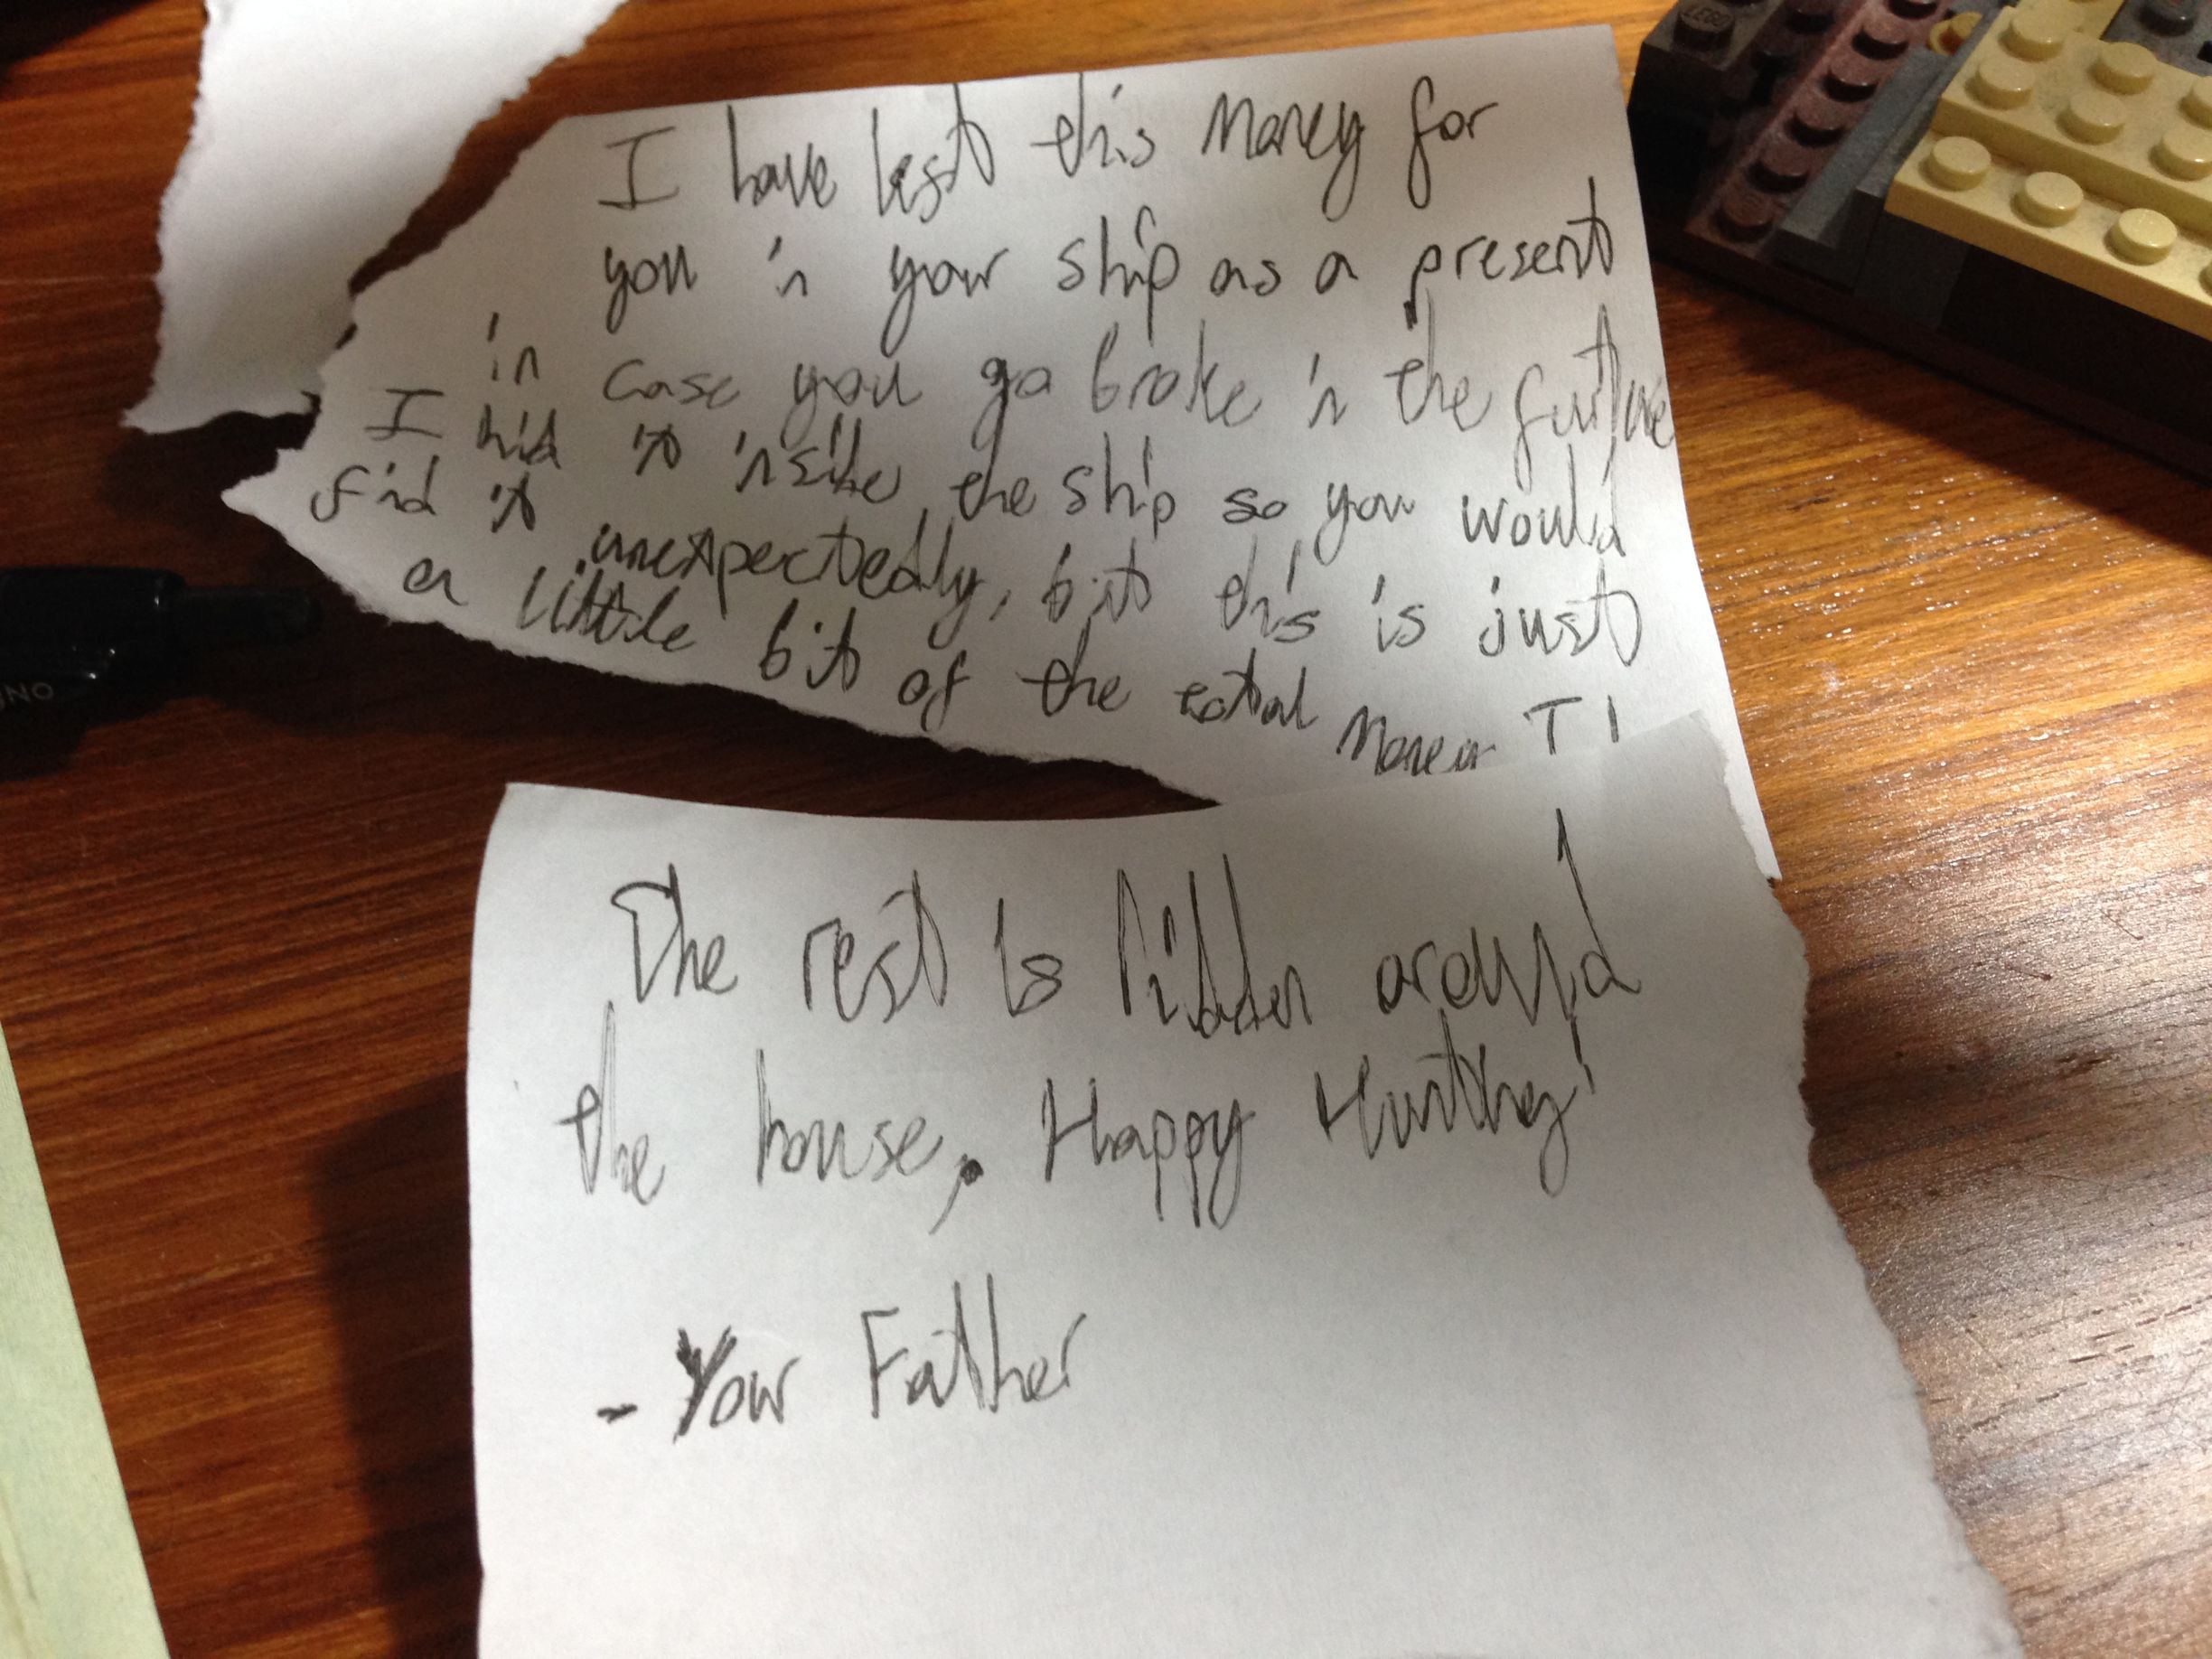 I have left this money for
you in your ship as a present
in case you go broke in the future
I hid it inside the ship so you would
find it unexpectedly, but this is just
a little bit of the total money I
The rest is hidden around
the house. Happy Hunting!
- Your Father
LEGO